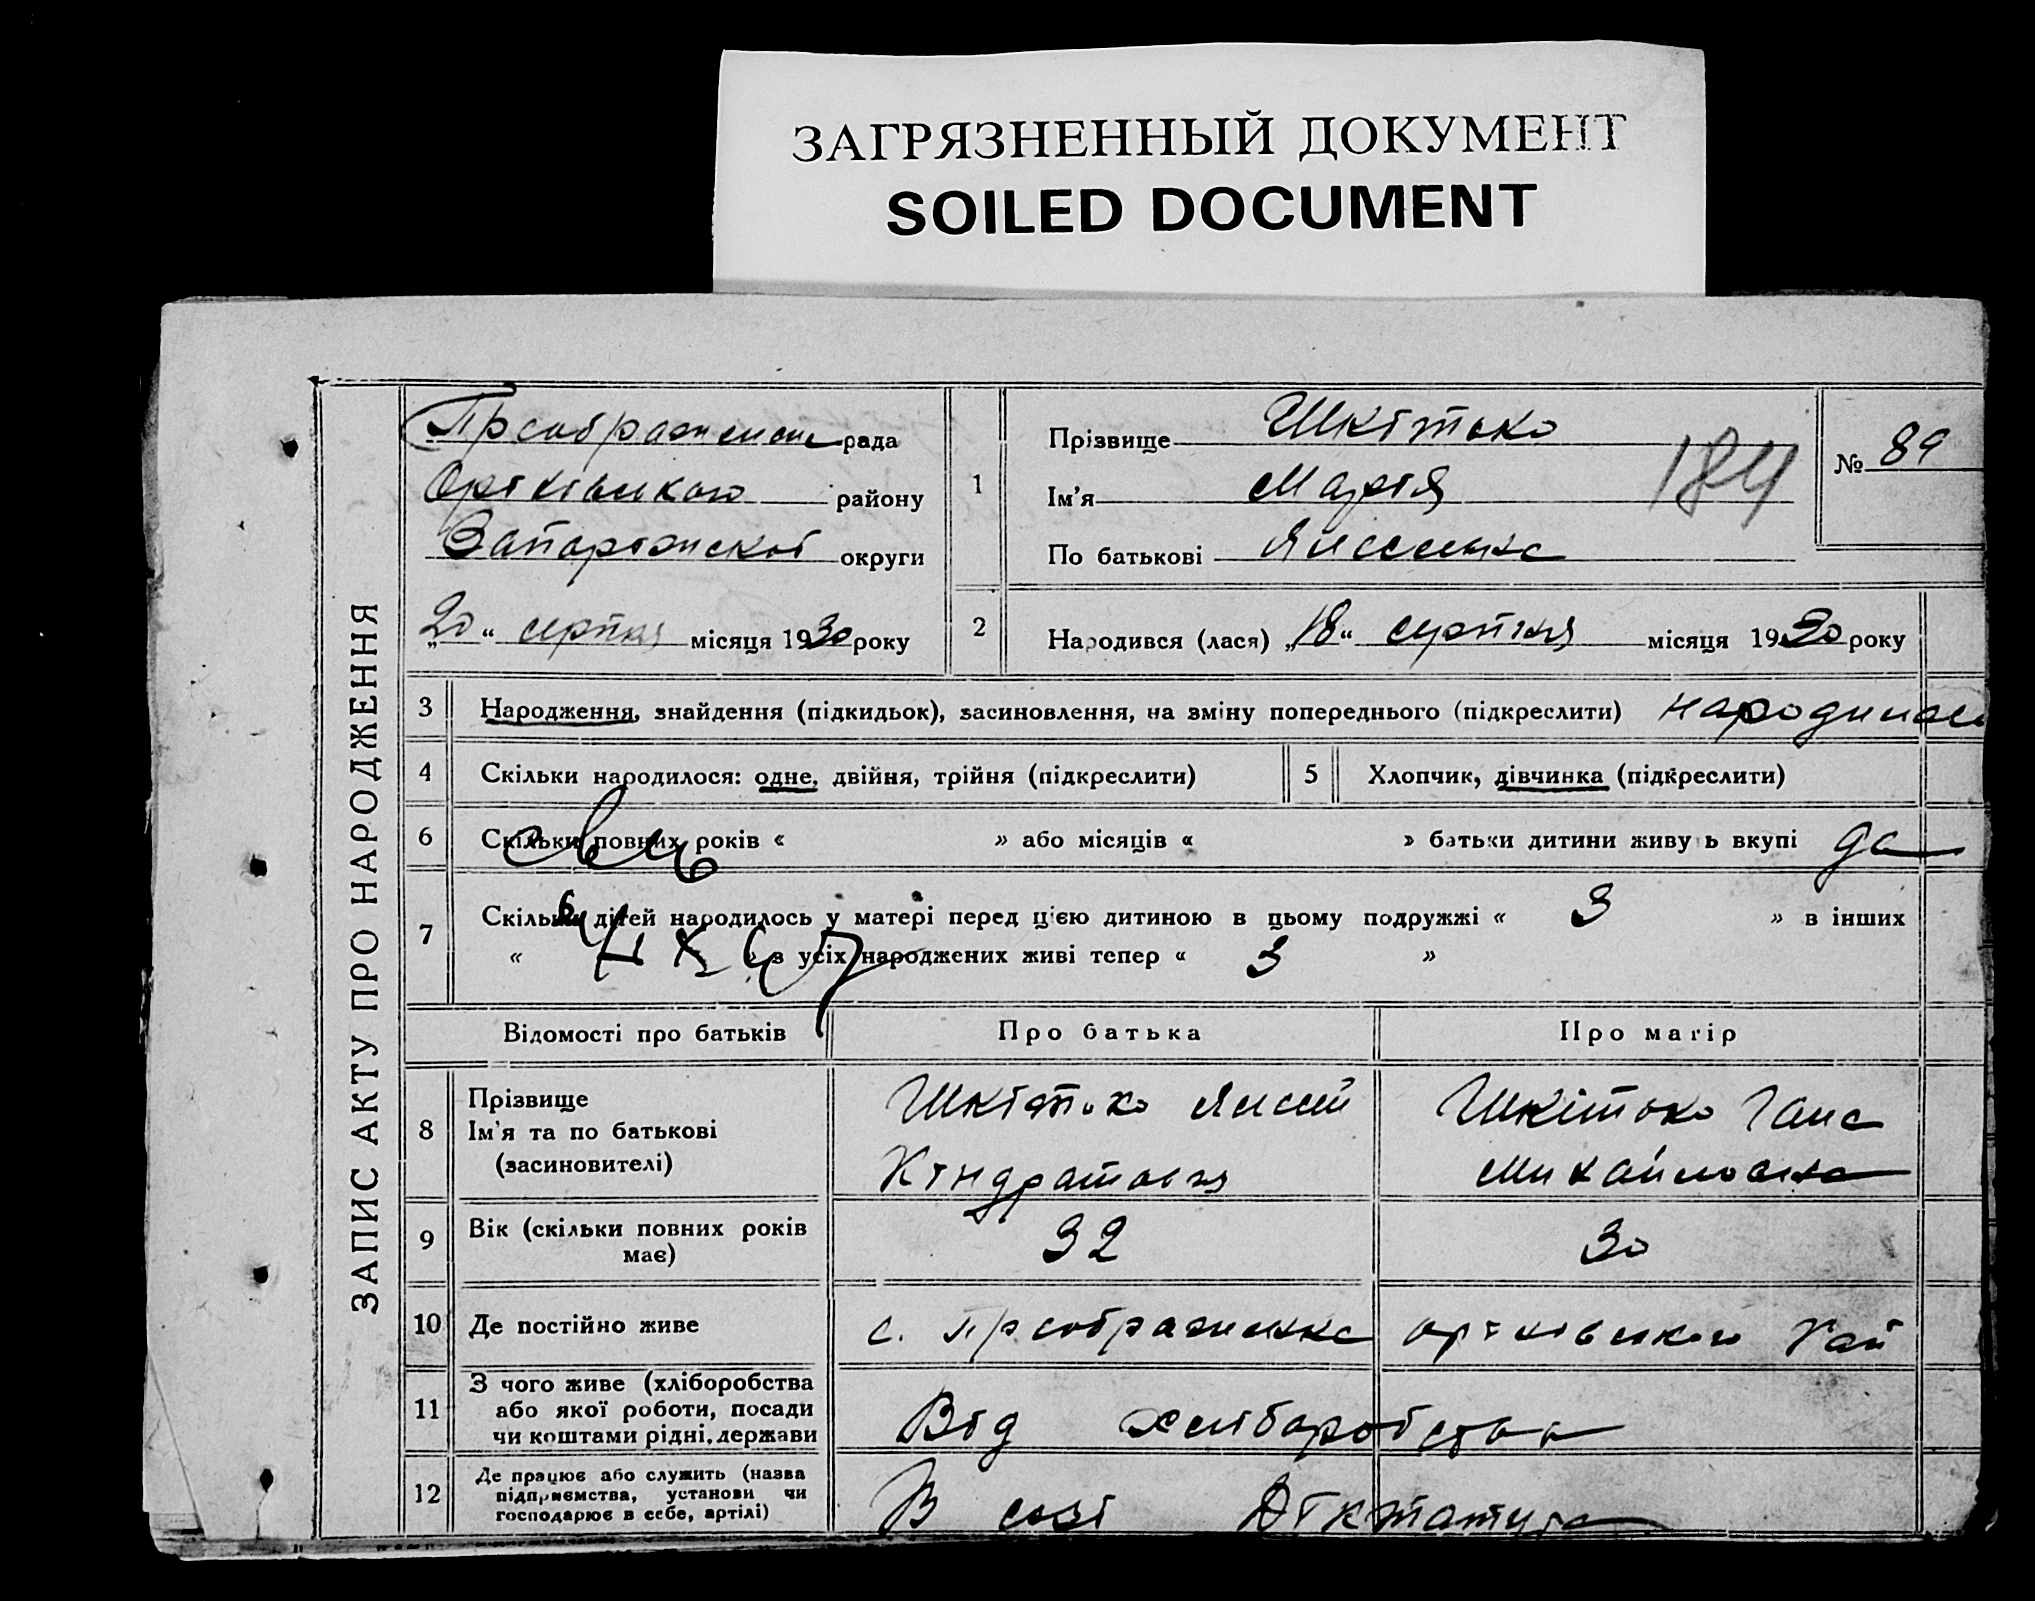 ЗАГРЯЗНЕННЫЙ ДОКУМЕНТ
SOILED DOCUMENT
ЗАПИС АКТУ ПРО НАРОДЖЕННЯ
рада
району
Запоріжскої округи
„20“ серпня місяця 1930 року
1 Прізвище Шкітько
Ім'я Марія
По батькові
184
№ 89
2 Народився (лася) „18“ серпння місяця 1930 року
3 Народження, знайдення (підкидьок), засиновлення, на зміну попереднього (підкреслити)
4 Скільки народилося: одне, двійня, трійня (підкреслити)
5 Хлопчик, дівчинка (підкреслити)
6 Скільки повних років « » або місяців « » батьки дитини живуть вкупі да
7 Скільки дітей народилось у матері перед цією дитиною в цьому подружжі « 3 » в інших
« » з усіх народжених живі тепер « 3 »
Відомості про батьків
Про батька
Про матір
8 Прізвище
Ім'я та по батькові
(засиновителі)
Шкітько
Кіндратовия
Шкітоко Гана
Михайловна
9 Вік (скільки повних років
має)
32
30
10 Де постійно живе
с. Преображенка
рай
11 З чого живе (хліборобства
або якої роботи, посади
чи коштами рідні, держави
Від хліборобства
12 Де працює або служить (назва
підприємства, установи чи
господарює в себе, артілі)
В созі Діктатура